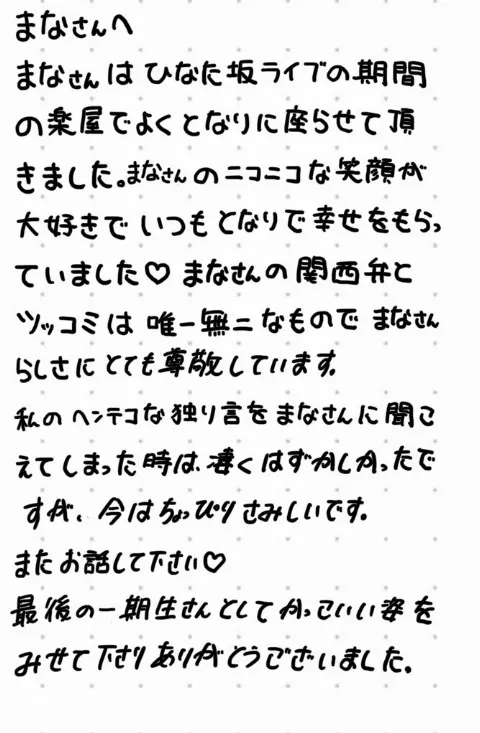 まなさんへ
まなさんは ひなた坂ライブの期間
の楽屋でよくとなりに座らせて頂
きました。まなさんのニコニコな笑顔が
大好きで いつもとなりで幸せをもらっ
ていました♡ まなさんの関西弁と
ツッコミは 唯一無二なもので まなさん
らしさに とても尊敬しています。
私の ヘンテコな独り言を まなさんに聞こ
えてしまった時は、凄くはずかしかったで
すが、今はちょっぴりさみしいです。
またお話して下さい♡
最後の一期生さんとしてかっこいい姿を
みせて下さりありがとうございました。